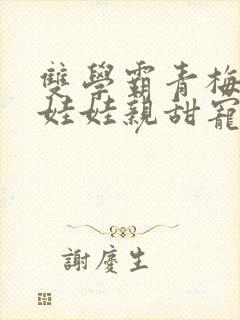 雙學霸青梅
娃娃親甜寵
謝慶生